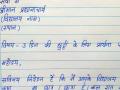 सेवा में
श्रीमान प्रधानाचार्य
(विद्यालय नाम)
(स्थान)
विषय - 3 दिन की छुट्टी के लिए प्रार्थना प
महोदय,
सविनय निवेदन है कि मैं आपके विद्यालय